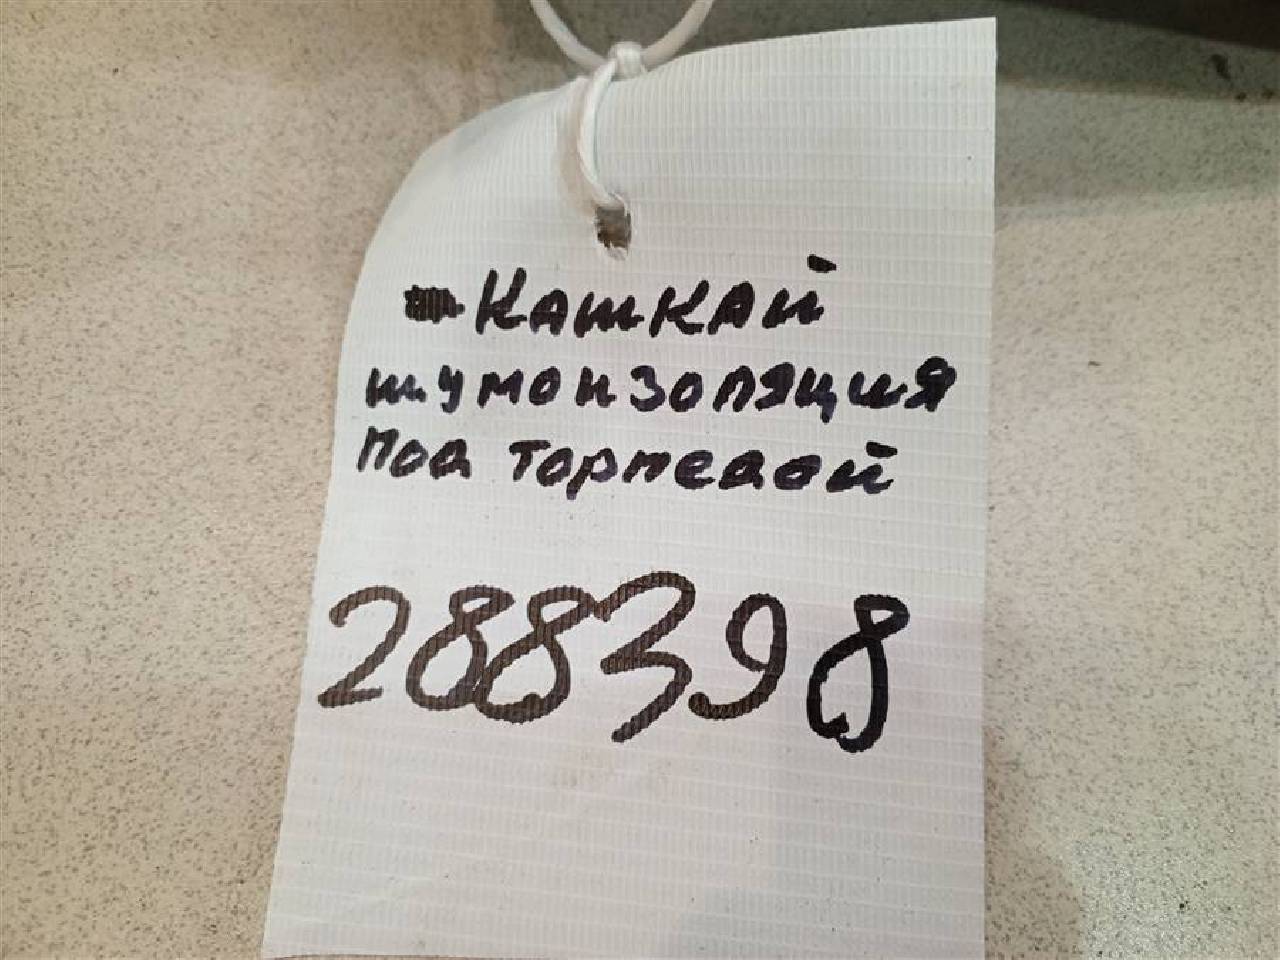 Кашкай
шумоизоляция
под торпедой
288398